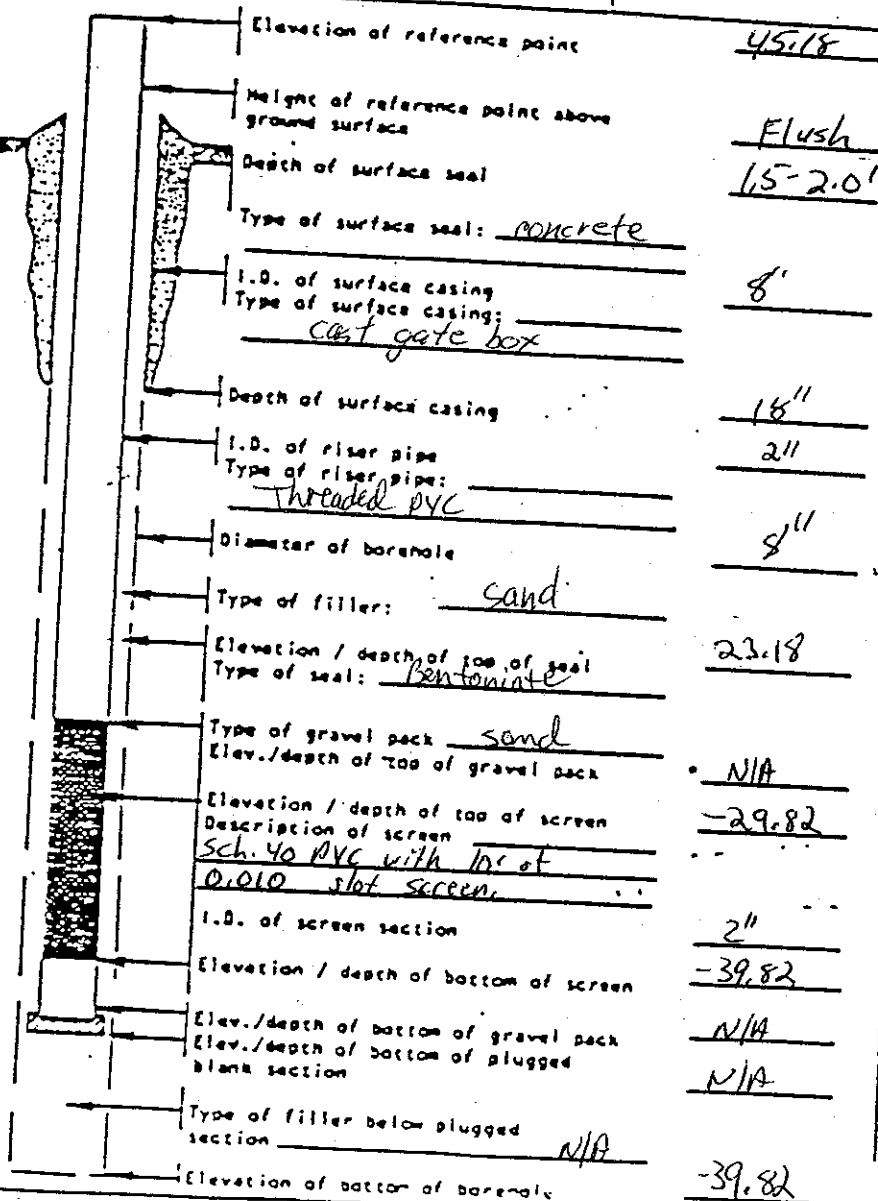 Elevation of reference point 45.18
Height of reference point above
ground surface Flush
Depth of surface seal 1.5-2.0'
Type of surface seal: concrete
I.D. of surface casing 8"
Type of surface casing:
cast gate box
Depth of surface casing 18"
I.D. of riser pipe 2"
Type of riser pipe:
Threaded PVC
Diameter of borehole 8"
Type of filler: Sand
Elevation / depth of top of seal 23.18
Type of seal: Bentoninte
Type of gravel pack sand
Elev./depth of top of gravel pack N/A
Elevation / depth of top of screen -29.82
Description of screen
Sch. 40 PVC with 10' of
0.010 slot screen.
I.D. of screen section 2"
Elevation / depth of bottom of screen -39.82
Elev./depth of bottom of gravel pack N/A
Elev./depth of bottom of plugged
blank section N/A
Type of filler below plugged
section N/A
Elevation of bottom of borehole -39.82